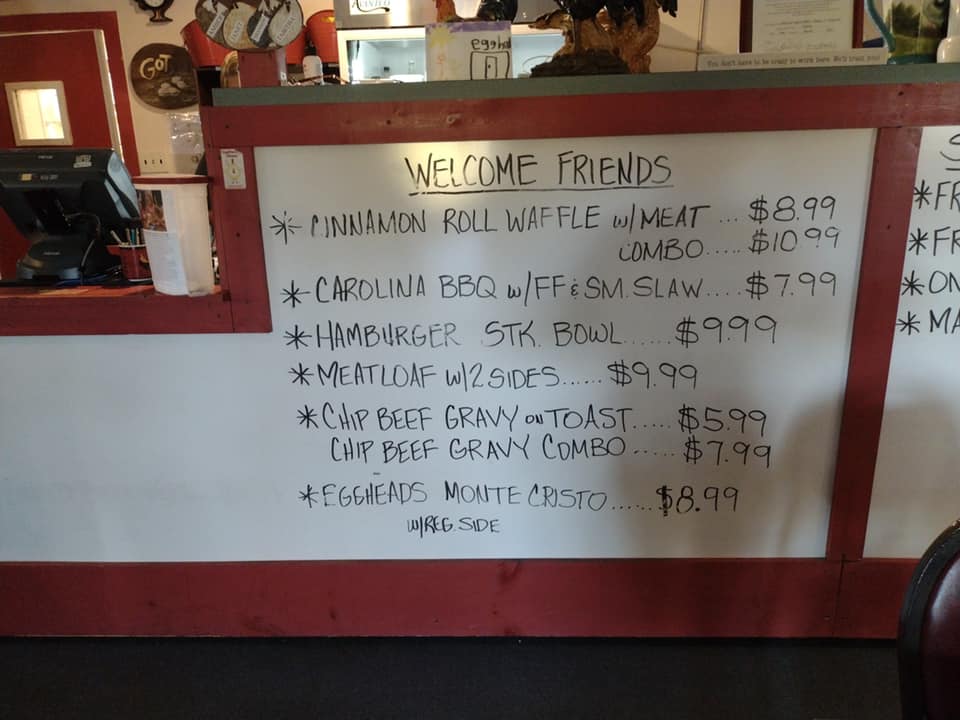 GOT
egghead
You don't have to be crazy to work here. We'll train you!
WELCOME FRIENDS
* CINNAMON ROLL WAFFLE w/MEAT ... $8.99
COMBO..... $10.99
* CAROLINA BBQ w/FF & SM. SLAW.... $7.99
* HAMBURGER STK. BOWL...... $9.99
* MEATLOAF w/2 SIDES...... $9.99
* CHIP BEEF GRAVY ON TOAST..... $5.99
CHIP BEEF GRAVY COMBO ..... $7.99
* EGGHEADS MONTE CRISTO...... $8.99
w/REG. SIDE
S
* FR
* FR
* ON
* MA